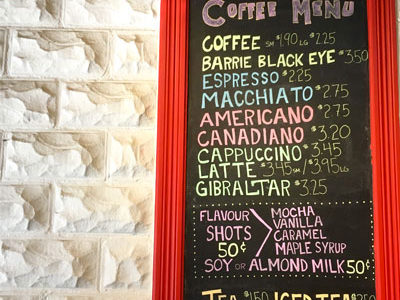 COFFEE MENU
COFFEE SM $1.90 LG $2.25
BARRIE BLACK EYE $3.50
ESPRESSO $2.25
MACCHIATO $2.75
AMERICANO $2.75
CANADIANO $3.20
CAPPUCCINO $3.45
LATTE $3.45 SM / $3.95 LG
GIBRALTAR $3.25
FLAVOUR SHOTS 50¢
MOCHA
VANILLA
CARAMEL
MAPLE SYRUP
SOY OR ALMOND MILK 50¢
TEA $1.50 ICED TEA